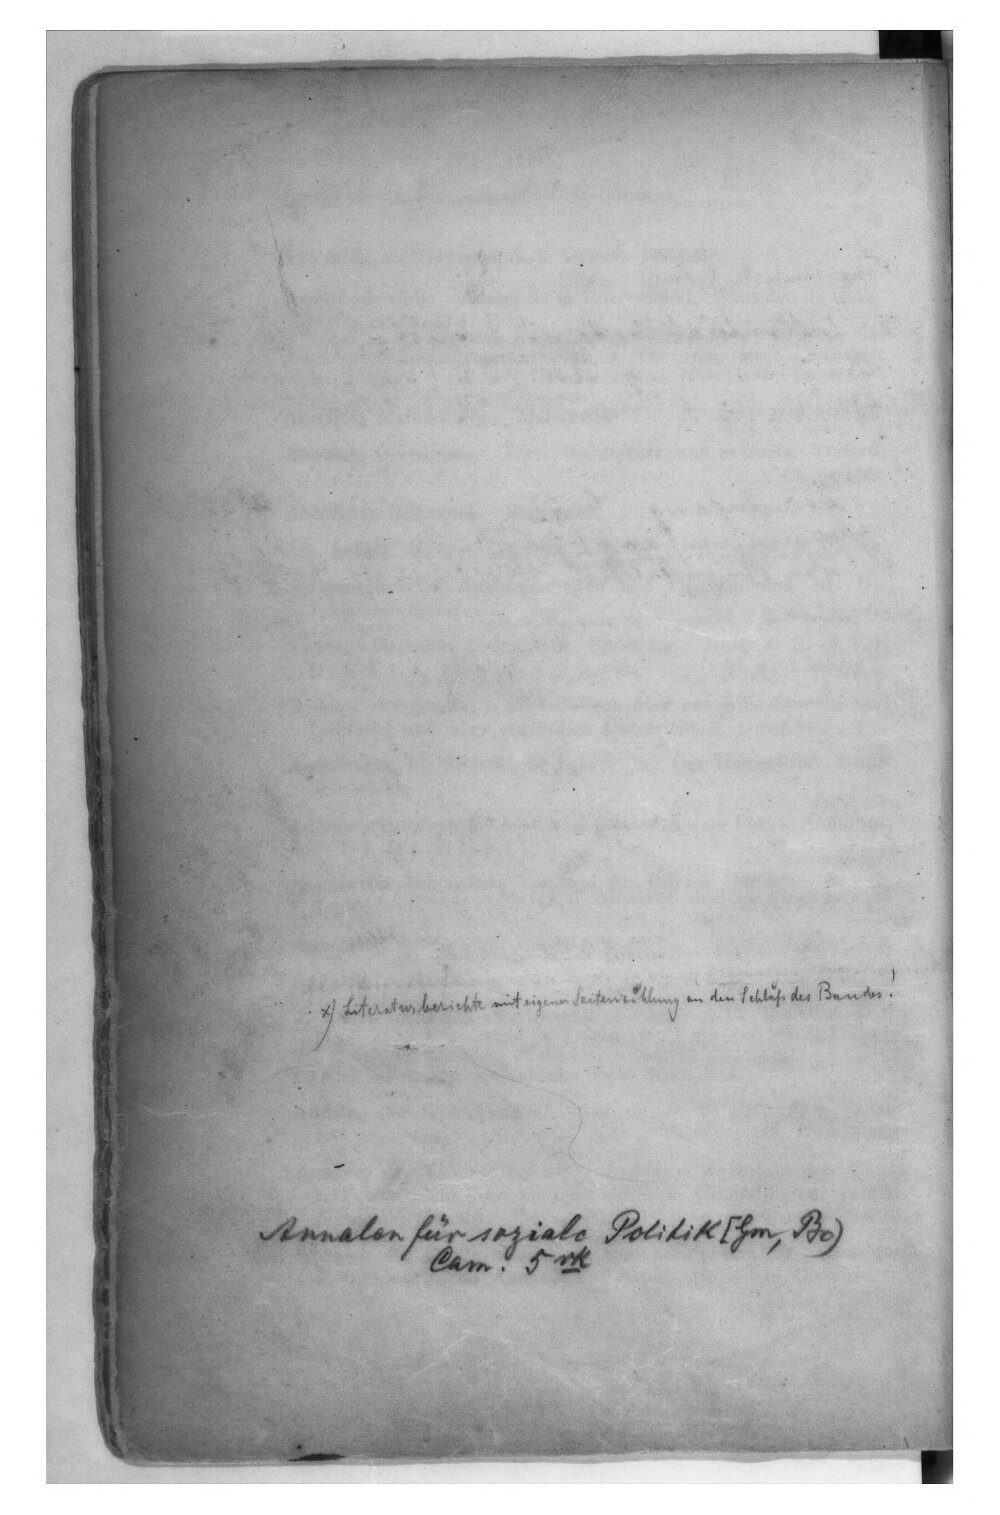 x) Literaturberichte mit eigener Seitenzählung an den Schluß des Bandes!
Annalen für soziale Politik [Gm, Bo)
Cam. 5 vK